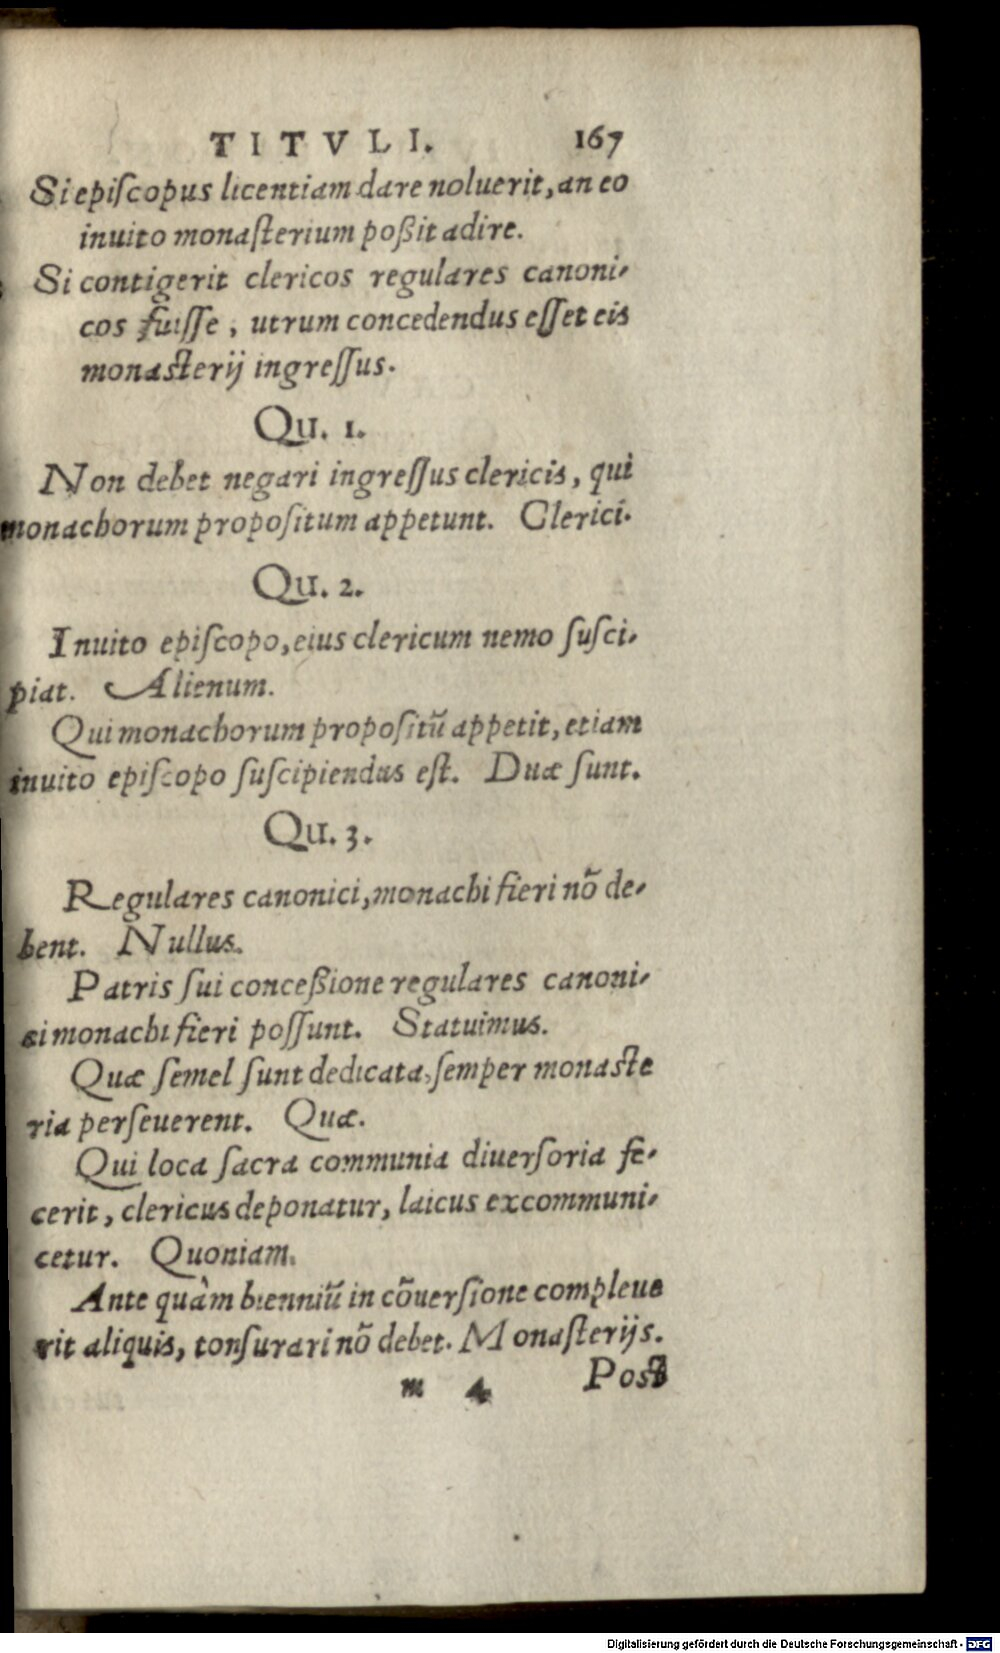 TITVLI. 167
Si epiſcopus licentiam dare noluerit, an eo
inuito monaſterium poßit adire.
Si contigerit clericos regulares canoni-
cos fuiſſe, utrum concedendus eſſet eis
monaſterij ingreſſus.
Qu. 1.
Non debet negari ingreſſus clericis, qui
monachorum propoſitum appetunt. Clerici.
Qu. 2.
Inuito epiſcopo, eius clericum nemo ſuſci-
piat. Alienum.
Qui monachorum propoſitũ appetit, etiam
inuito epiſcopo ſuſcipiendus eſt. Duæ ſunt.
Qu. 3.
Regulares canonici, monachi fieri nõ de-
bent. Nullus.
Patris ſui conceßione regulares canoni-
ci monachi fieri poſſunt. Statuimus.
Quæ ſemel ſunt dedicata, ſemper monaſte
ria perſeuerent. Quæ.
Qui loca ſacra communia diuerſoria fe-
cerit, clericus deponatur, laicus excommuni-
cetur. Quoniam.
Ante quàm bienniũ in cõuerſione compleue
rit aliquis, tonſurari nõ debet. Monaſterijs.
m 4 Poſt
Digitalisierung gefördert durch die Deutsche Forschungsgemeinschaft - DFG